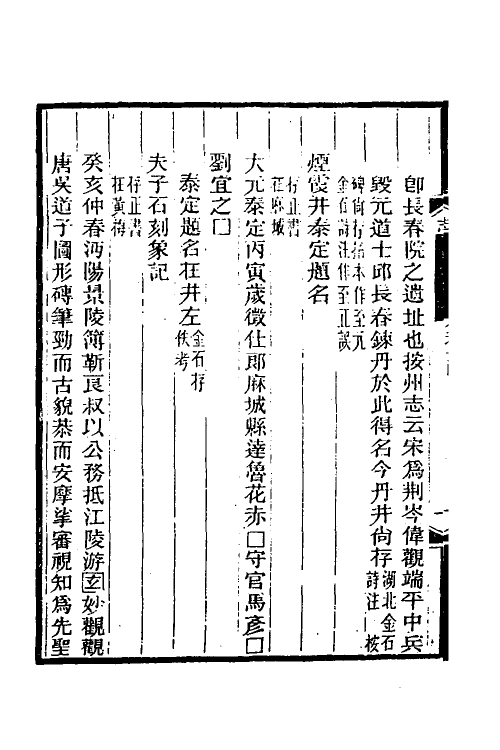 卽長春院之遺址也按州志云宋爲荆岑偉觀端平中兵
毀元道士邱長春鍊丹於此得名今丹井尙存湖北金石詩注 按
碑尙存拓本作至元金石詩注作至正誤
煙霞井泰定題名
存正書在麻城
大元泰定丙寅歲徵仕郎麻城縣達魯花赤□守官馬彥□
劉宜之□
泰定題名在井左金石存佚考
夫子石刻象記
存正書在黃梅
癸亥仲春沔陽景陵簿靳良叔以公務抵江陵游玄妙觀觀
唐吳道子圖形磚筆勁而古貌恭而安摩挲審視知爲先聖